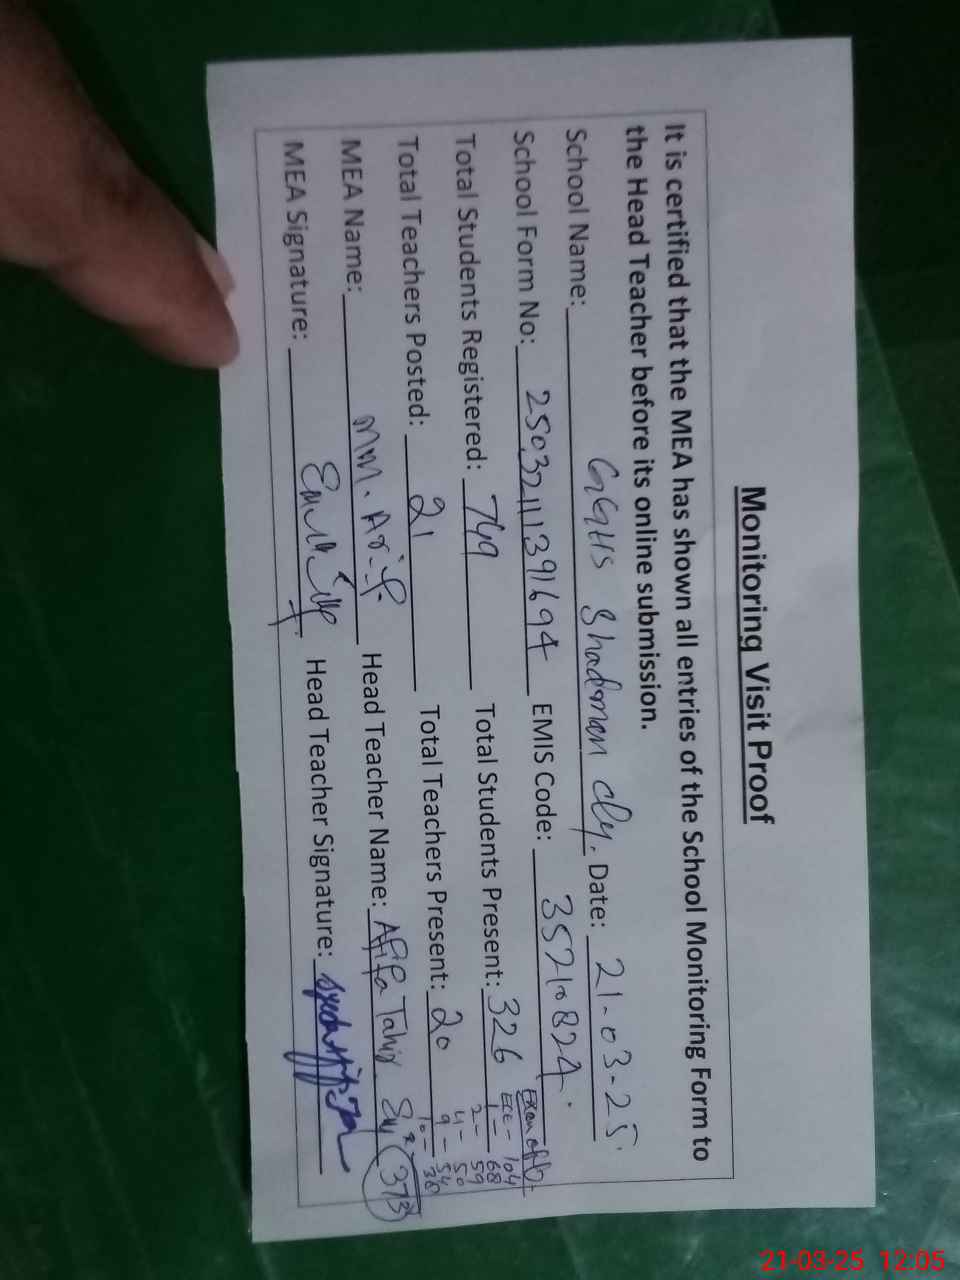 Monitoring Visit Proof
It is certified that the MEA has shown all entries of the School Monitoring Form to
the Head Teacher before its online submission.
School Name: GGHS Shadman Date: 21-03-25
School Form No: 2503211391694 EMIS Code: 35210824
Total Students Registered: 749 Total Students Present: 326
Total Teachers Posted: 21 Total Teachers Present: 20
MEA Name: MM. Arif Head Teacher Name: Afifa Tahir
MEA Signature: Head Teacher Signature:
Exam of
ECE - 104
1 - 68
2 - 59
4 - 50
9 - 54
10 - 38
373
21-03-25 12:05